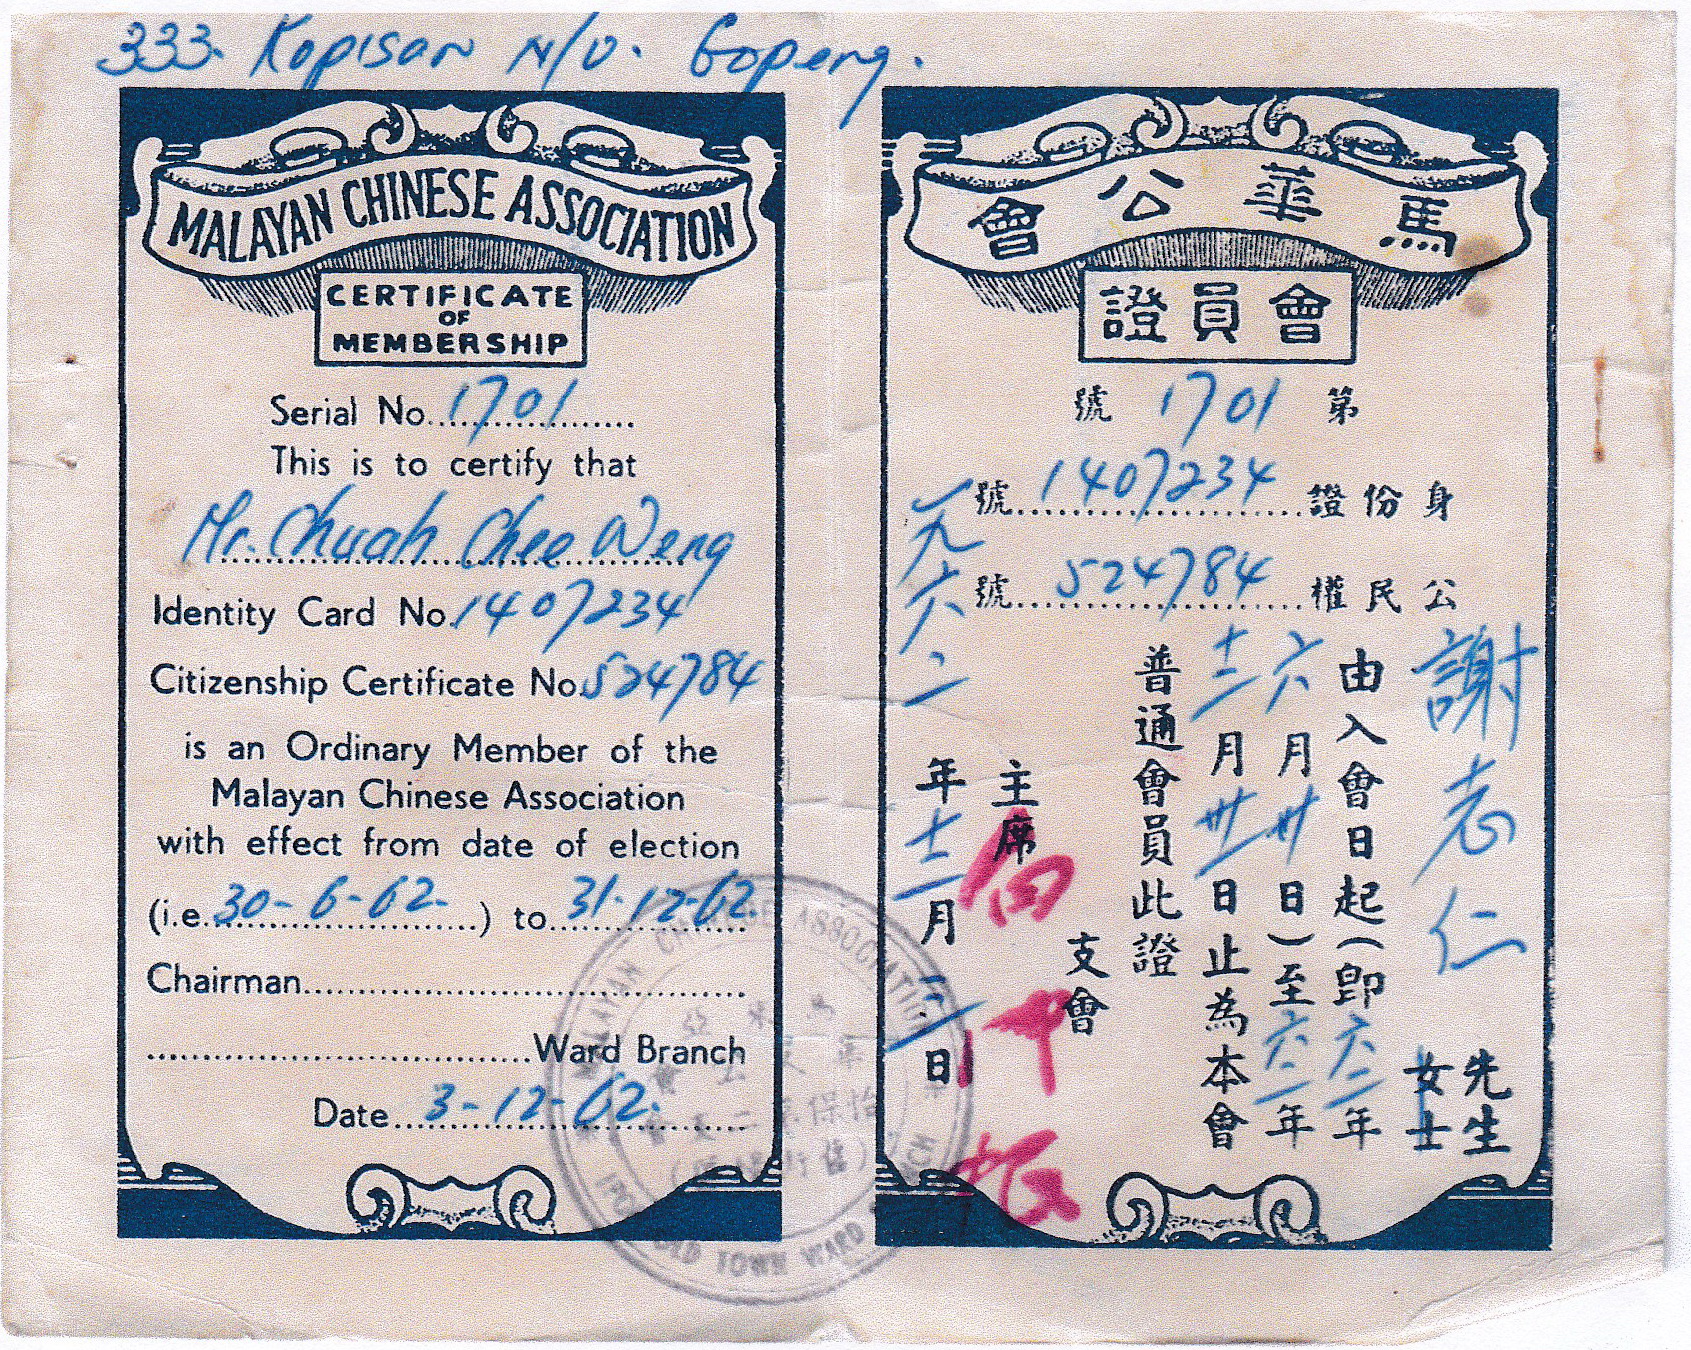 333. Kopisan N/V. Gopeng.
MALAYAN CHINESE ASSOCIATION
CERTIFICATE
OF
MEMBERSHIP
Serial No. 1701
This is to certify that
Mr. Chuah Chee Weng
Identity Card No. 1407234
Citizenship Certificate No. 524784
is an Ordinary Member of the
Malayan Chinese Association
with effect from date of election
(i.e. 30-6-62. ) to 31-12-62.
Chairman
Ward Branch
Date 3-12-62.
馬華公會
會員證
第 1701 號
身份證 1407234 號
公民權 524784 號
謝志仁 先生 女士
由入會日起(即六二年
六月卅日)至六二年
十二月卅一日止為本會
普通會員此證
支會
主席
一九六二年十二月三日
MALAYAN CHINESE ASSOCIATION
OLD TOWN WARD